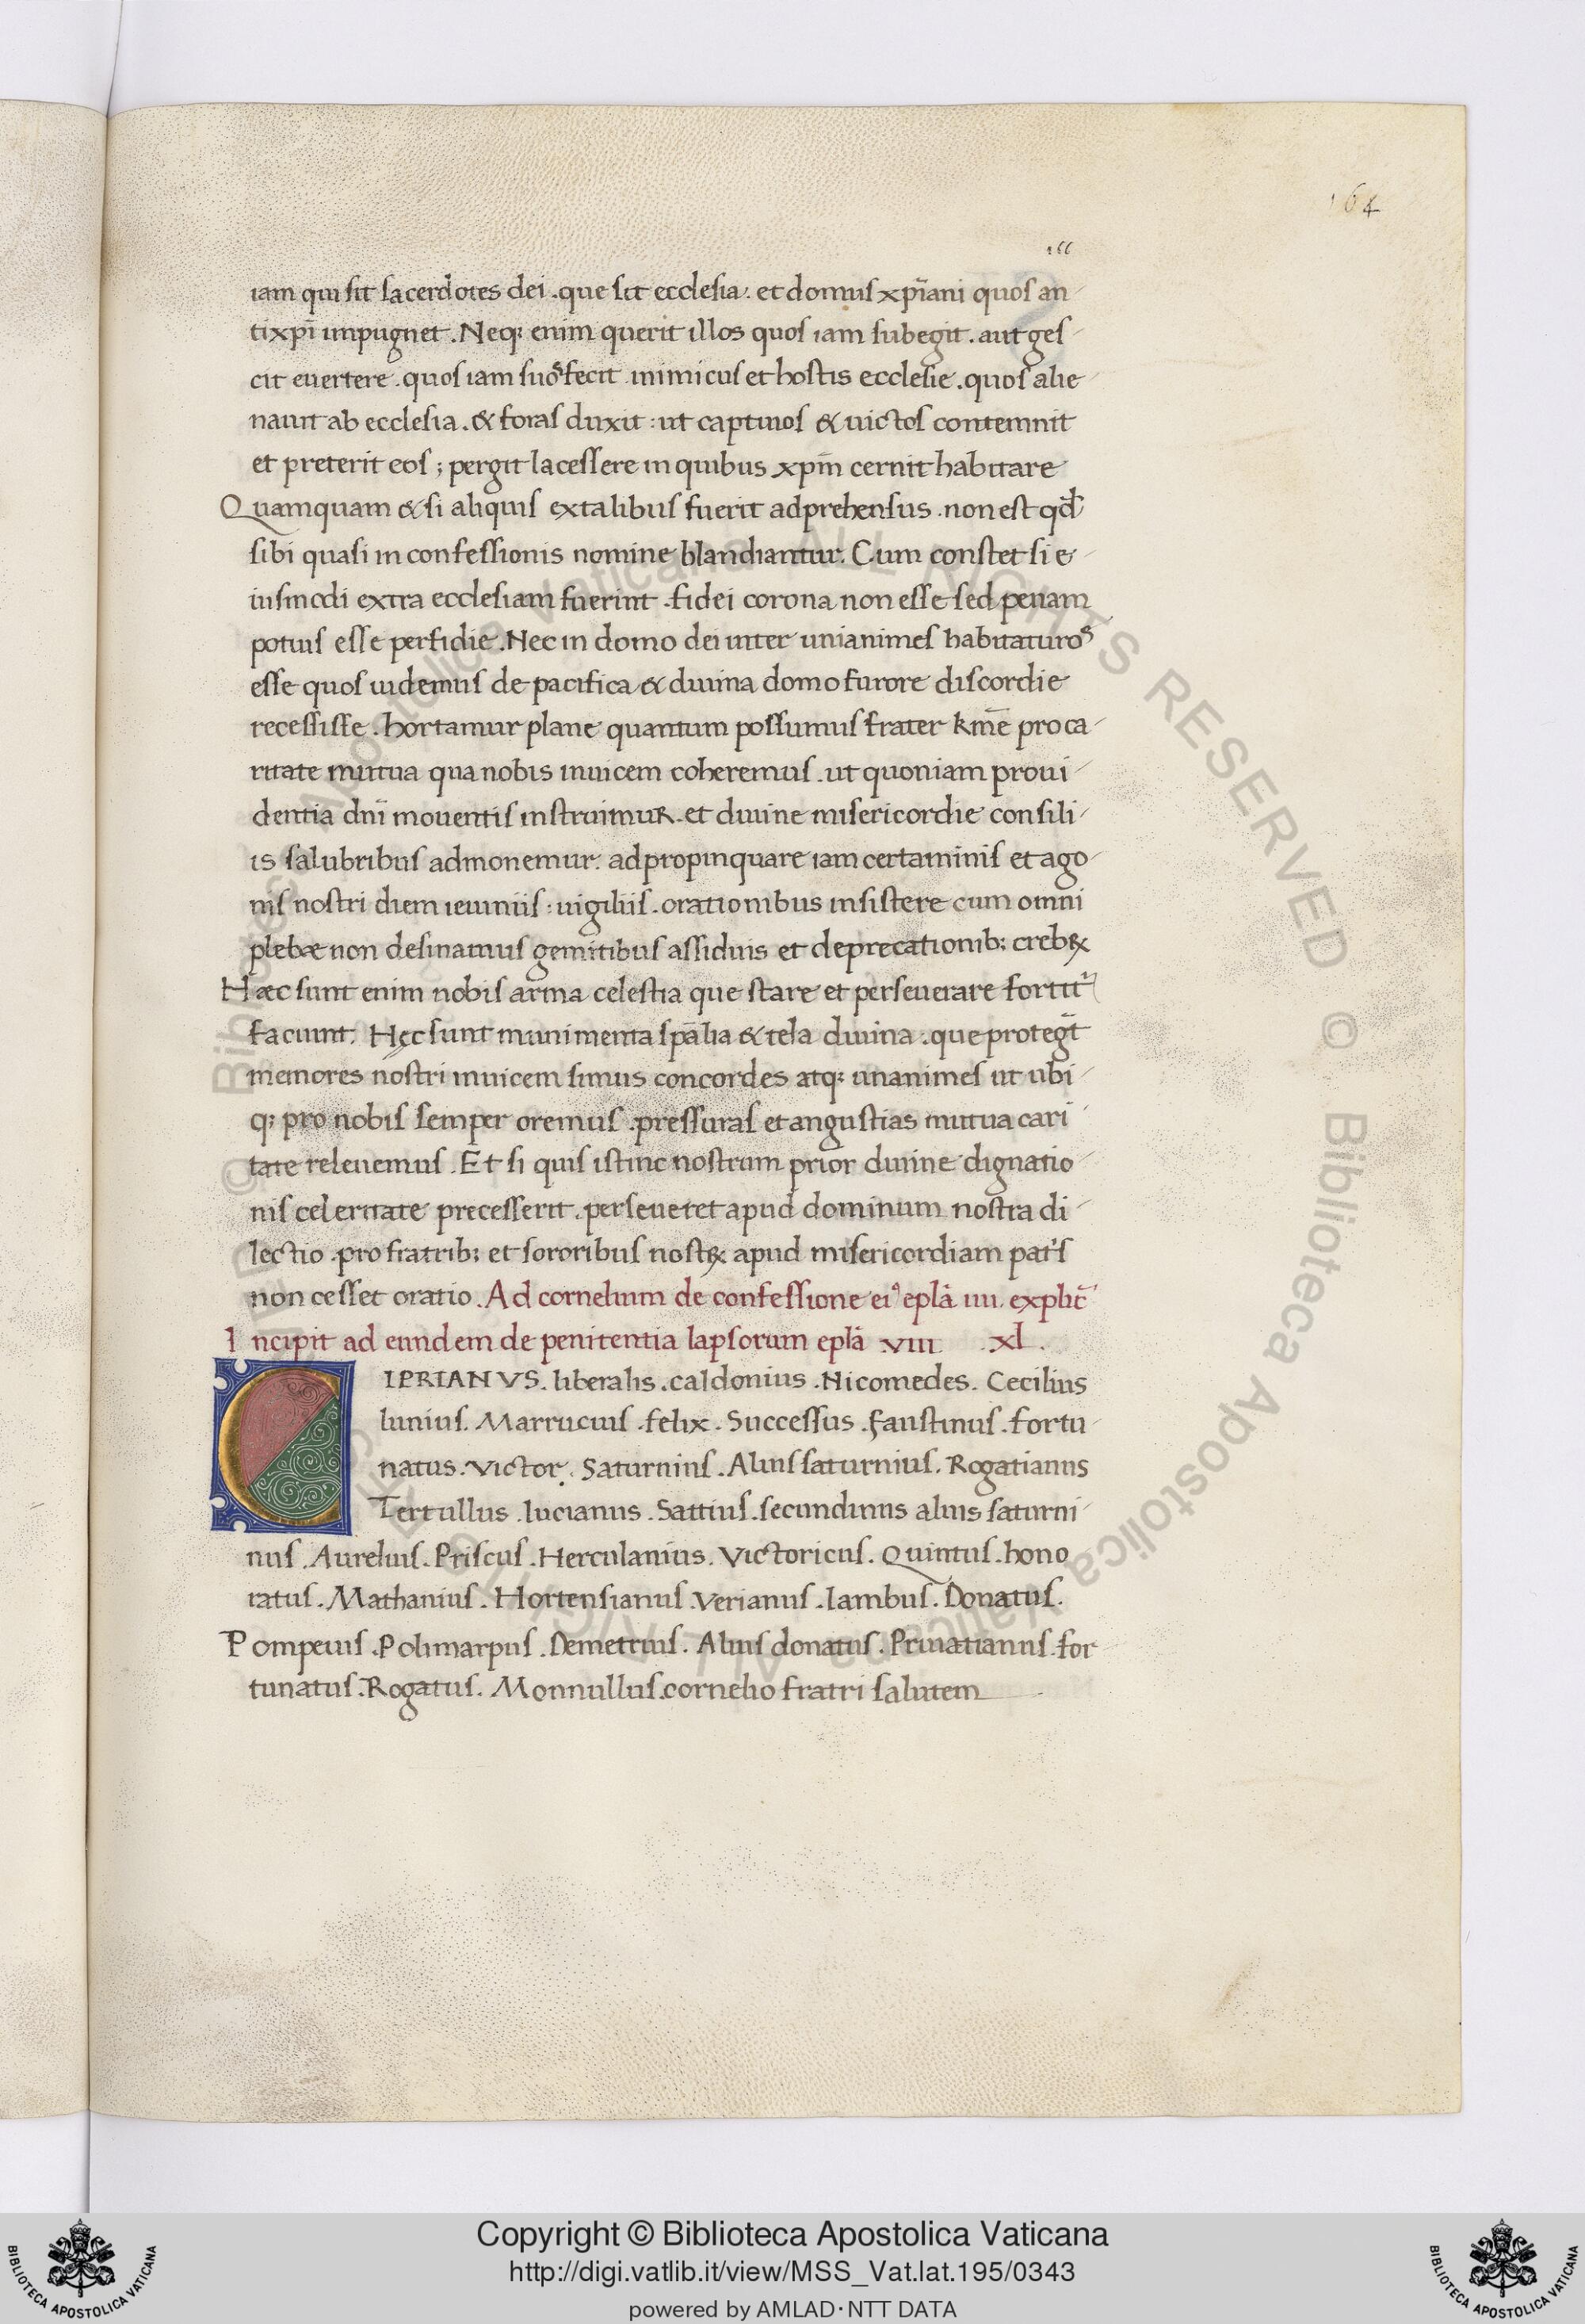 164
166
iam qui sit sacerdotes dei . que sit ecclesia . et domus xp̄iani quos an-
tixp̄i impugnet . Neq; enim querit illos quos iam subegit . aut ges-
cit euertere . quos iam suos fecit inimicus et hostis ecclesie . quos alie-
nauit ab ecclesia . & foras duxit : ut captiuos & uictos contemnit
et preterit eos ; pergit lacessere in quibus xp̄m cernit habitare
Quamquam & si aliquis ex talibus fuerit adprehensus . non est qd̄
sibi quasi in confessionis nomine blandiantur . Cum constet si e-
iusmodi extra ecclesiam fuerint . fidei corona non esse sed penam
potius esse perfidie . Nec in domo dei inter unianimes habitaturos
esse quos uidemus de pacifica & diuina domo furore discordie
recessisse . hortamur plane quantum possumus frater km̄e pro ca-
ritate mutua qua nobis inuicem coheremus . ut quoniam proui-
dentia dn̄i mouentis instruimur . et diuine misericordie consili-
is salubribus admonemur . adpropinquare iam certaminis et ago-
nis nostri diem ieiuniis : uigiliis . orationibus insistere cum omni
plebæ non desinamus gemitibus assiduis et deprecationib; crebꝝ
Hæc sunt enim nobis arma celestia que stare et perseuerare fortit̄
faciunt . Hęc sunt munimenta sp̄alia & tela diuina . que protegt̄
memores nostri inuicem simus concordes atq; unanimes ut ubi-
q; pro nobis semper oremus . pressuras et angustias mutua cari-
tate releuemus . Et si quis istinc nostrum prior diuine dignatio-
nis celeritate precesserit . perseueret apud dominum nostra di-
lectio . pro fratrib; et sororibus nostꝝ apud misericordiam pat's
non cesset oratio . Ad cornelium de confessione ei⁹ epl̄a iiii . explic̄
Incipit ad eundem de penitentia lapsorum epl̄a .viii . xl .
CIPRIANVS . liberalis . caldonius . Nicomedes . Cecilius
Iunius . Marrucius . felix . Successus . faustinus . fortu-
natus . Victor . Saturnins . Alius saturnius . Rogatianus
Tertullus . lucianus . Sattius . secundinus alius saturni-
nus . Aurelius . Priscus . Herculanius . Victoricus . Quintus . hono
ratus . Mathanius . Hortensianus . Verianus . Iambus . Donatus .
Pompeius . Polimarpus . Demetrius . Alius donatus . Priuatianus . for-
tunatus . Rogatus . Monnullus . cornelio fratri salutem
© Biblioteca Apostolica Vaticana ALL RIGHTS RESERVED
© Biblioteca Apostolica Vaticana ALL RIGHTS RESERVED
Copyright © Biblioteca Apostolica Vaticana
http://digi.vatlib.it/view/MSS_Vat.lat.195/0343
powered by AMLAD·NTT DATA
BIBLIOTECA APOSTOLICA VATICANA
BIBLIOTECA APOSTOLICA VATICANA